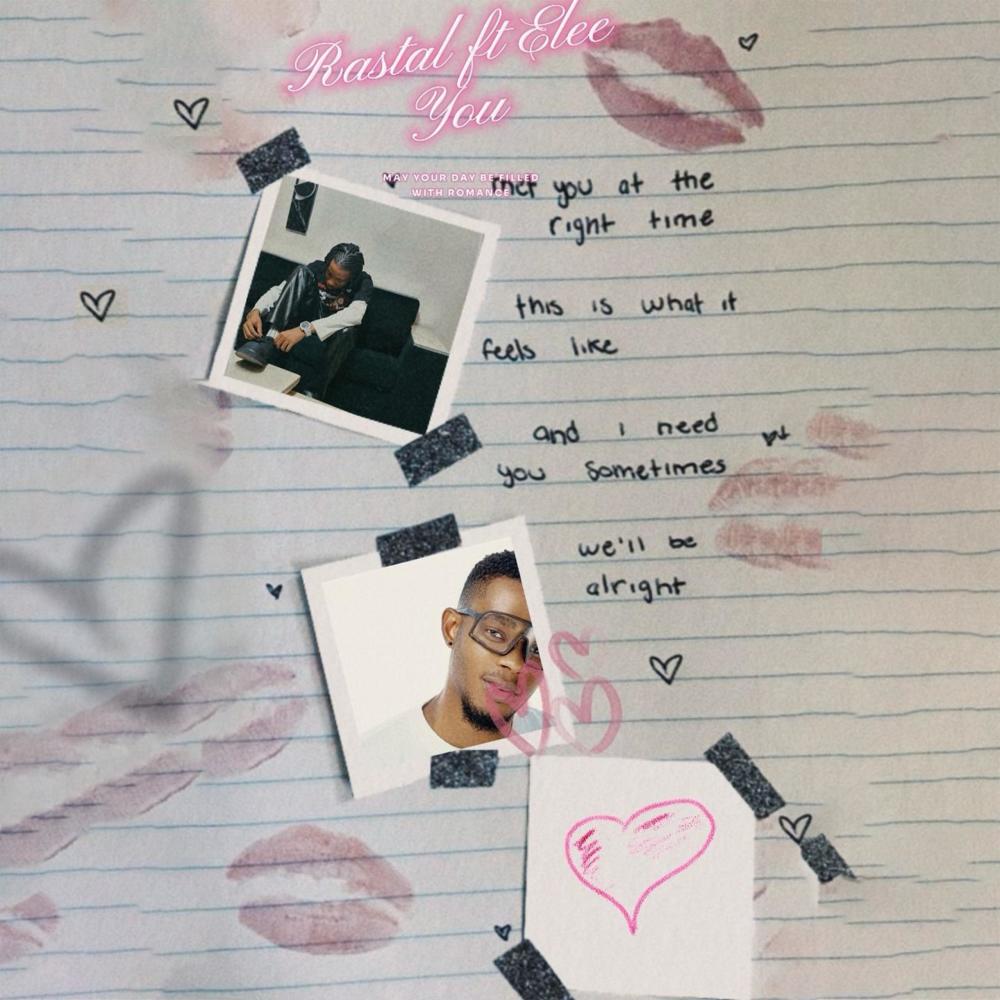 Rastal ft Elee
You
MAY YOUR DAY BE FILLED
WITH ROMANCE
met you at the
right time
this is what it
feels like
and i need
you sometimes
we'll be
alright